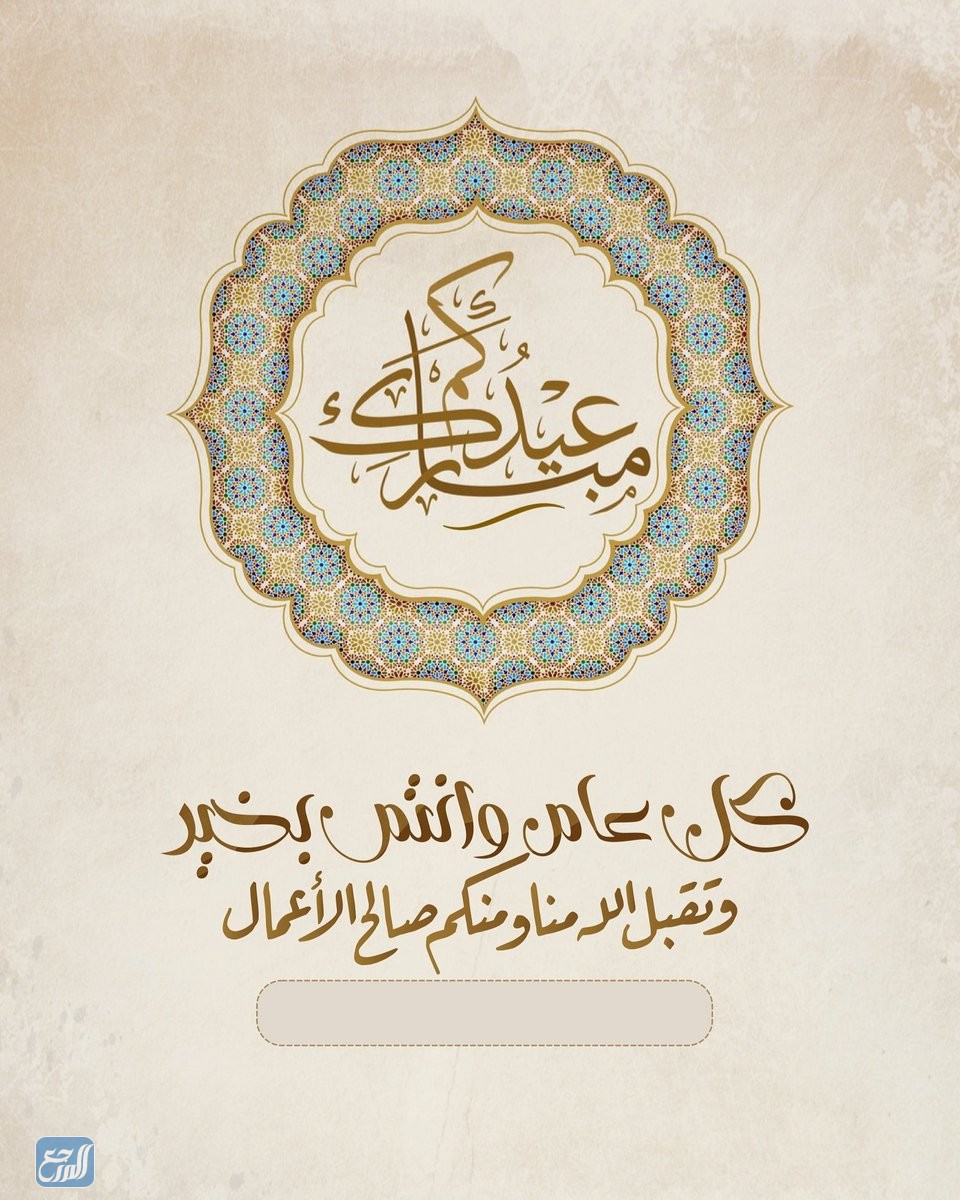 عيدكم مبارك
كل عام وانتم بخير
وتقبل الله منا ومنكم صالح الأعمال
المرجع